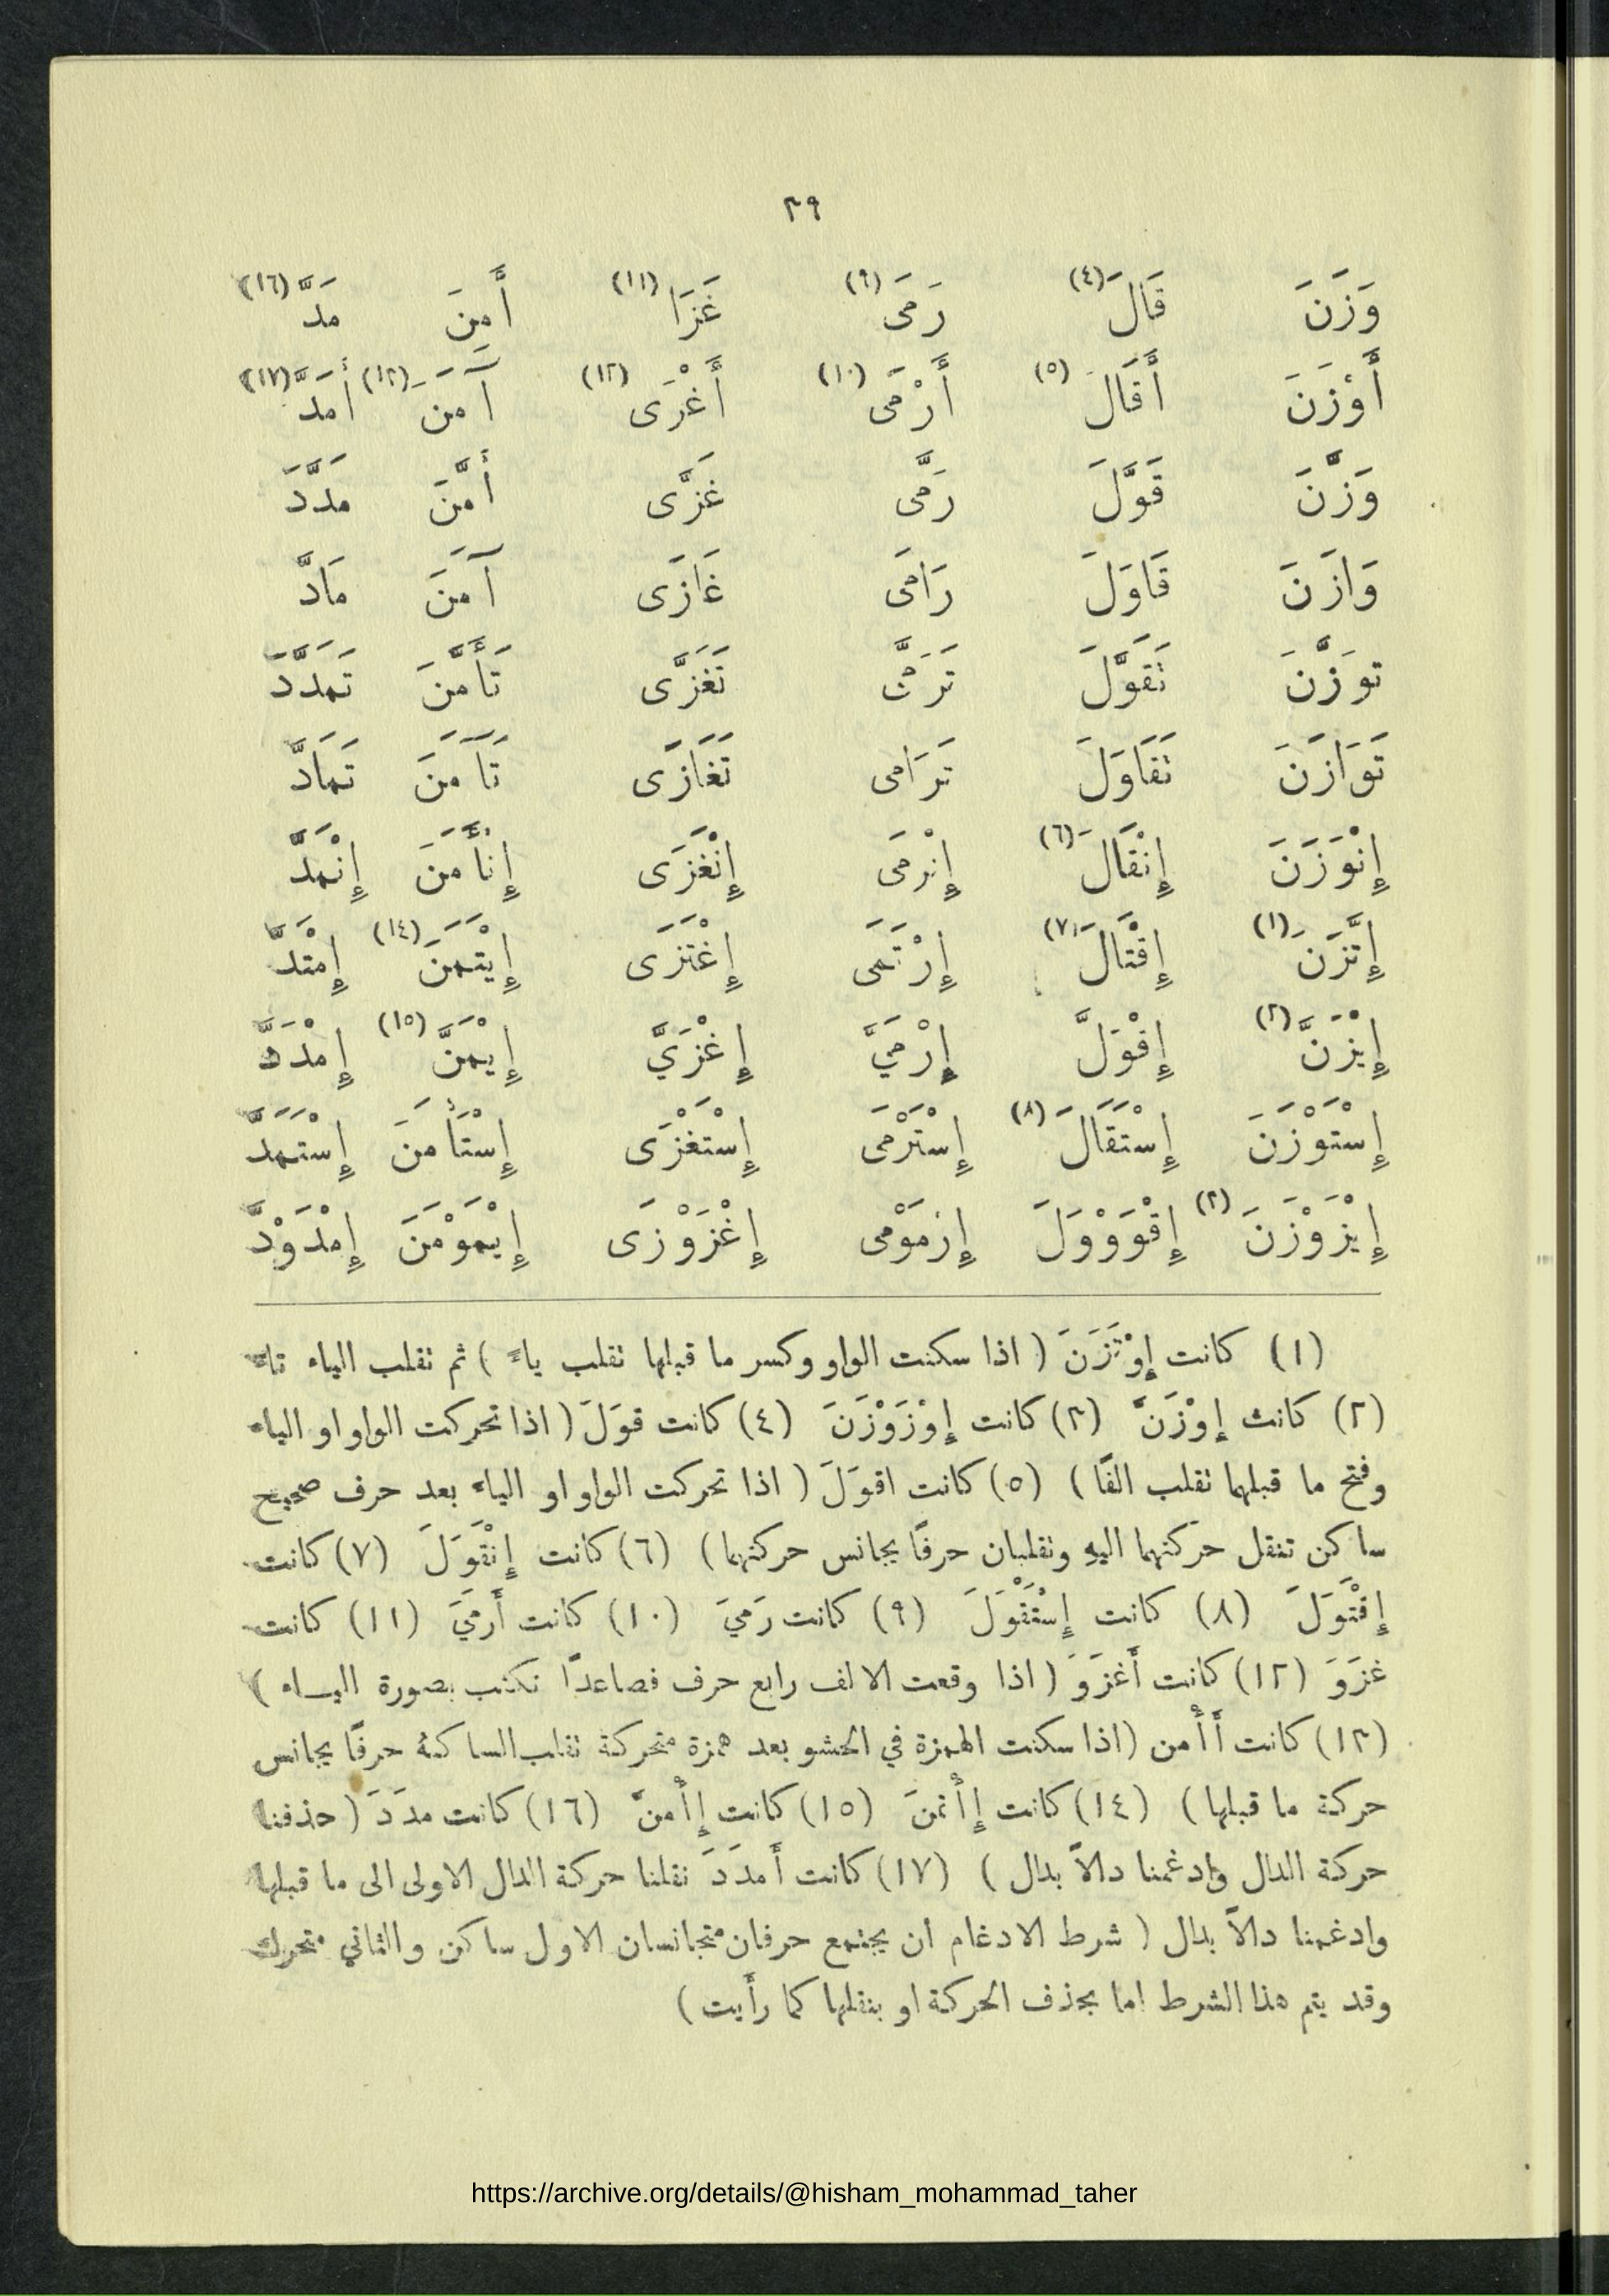 ٣٩
وَزَنَ قَالَ (٤) رَمَى (٩) غَزَا (١١) أَمِنَ مَدَّ (١٦)
أَوْزَنَ أَقَالَ (٥) أَرْمَى (١٠) أَغْزَى (١٢) آمَنَ (١٣) أَمَدَّ (١٧)
وَزَّنَ قَوَّلَ رَمَّى غَزَّى أَمَّنَ مَدَّدَ
وَازَنَ قَاوَلَ رَامَى غَازَى آمَنَ مَادَّ
تَوَزَّنَ تَقَوَّلَ تَرَمَّى تَغَزَّى تَأَمَّنَ تَمَدَّدَ
تَوَازَنَ تَقَاوَلَ تَرَامى تَغَازَى تَآمَنَ تَمَادَّ
إِنْوَزَنَ إِنْقَالَ (٦) إِنْرمَى إِنْغَزَى إِنْأَمَنَ إِنْمَدَّ
إِتَّزَنَ (١) إِقْتَالَ (٧) إِرْتَمَى إِغْتَزَى إِيْتَمَنَ (١٤) إِمْتَدَّ
إِيْزَنَّ (٢) إِقْوَلَّ إِرْمَيَّ إِغْزَيَّ إِيْمَنَّ (١٥) إِمْدَدَّ
إِسْتَوْزَنَ إِسْتَقَالَ (٨) إِسْتَرْمَى إِسْتَغْزَى إِسْتَأْمَنَ إِسْتَمَدَّ
إِيْزَوْزَنَ (٣) إِقْوَوْوَلَ إِرمَوْمى إِغْزَوْزَى إِيْمَوْمَنَ إِمْدَوْدَّ
(١) كانت إِوْتَزَنَ ( اذا سكنت الواو وكسر ما قبلها تقلب ياءً ) ثم تقلب الياء تاءً
(٢) كانت إِوْزَنَّ (٣) كانت إِوْزَوْزَنَ (٤) كانت قوَلَ ( اذا تحركت الواو او الياء
وفتح ما قبلهما تقلب الفًا ) (٥) كانت اقوَلَ ( اذا تحركت الواو او الياء بعد حرف صحيح
ساكن تنقل حركتهما اليهِ وتقلبان حرفًا يجانس حركتهما ) (٦) كانت إِنْقَوَلَ (٧) كانت
إِقْتَوَلَ (٨) كانت إِسْتَقْوَلَ (٩) كانت رَميَ (١٠) كانت أَرمَيَ (١١) كانت
غزَوَ (١٢) كانت أَغزَوَ ( اذا وقعت الالف رابع حرف فصاعدًا تكتب بصورة اليـاء )
(١٣) كانت أَأْمن (اذا سكنت الهمزة في الحشو بعد همزة متحركة تقلب الساكنة حرفًا يجانس
حركة ما قبلها ) (١٤) كانت إِأْتمنَ (١٥) كانت إِأْمنَّ (١٦) كانت مدَدَ ( حذفنا
حركة الدال وادغمنا دالاً بدال ) (١٧) كانت أَمدَدَ نقلنا حركة الدال الاولى الى ما قبلها
وادغمنا دالاً بدال ( شرط الادغام ان يجتمع حرفان متجانسان الاول ساكن والثاني متحرك
وقد يتم هذا الشرط اما بحذف الحركة او بنقلها كما رأَيت )
https://archive.org/details/@hisham_mohammad_taher